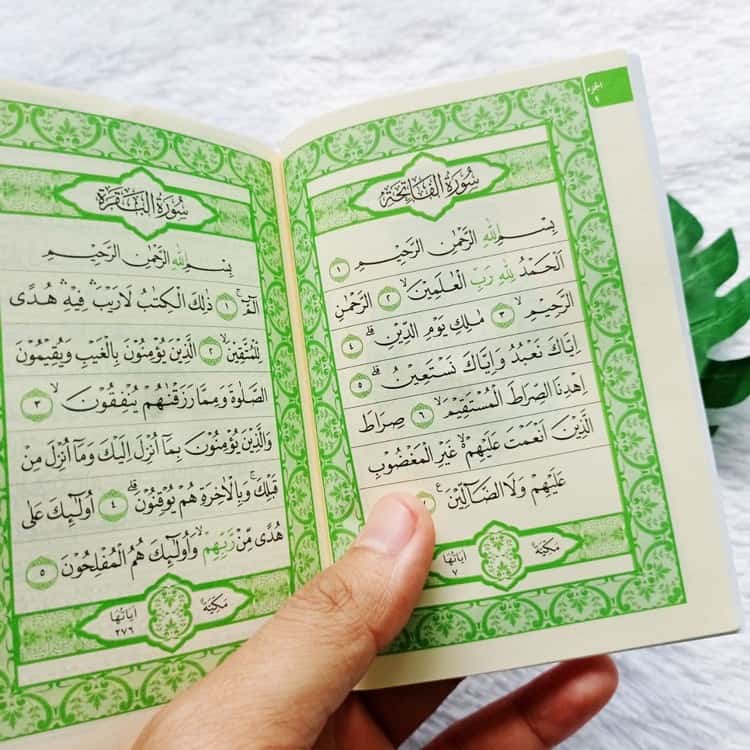 الجزء
١
سُورَةُ الْفَاتِحَةِ
بِسْمِ اللهِ الرَّحْمٰنِ الرَّحِيْمِ ١
اَلْحَمْدُ لِلّٰهِ رَبِّ الْعٰلَمِيْنَۙ ٢ الرَّحْمٰنِ
الرَّحِيْمِۙ ٣ مٰلِكِ يَوْمِ الدِّيْنِۗ ٤
اِيَّاكَ نَعْبُدُ وَاِيَّاكَ نَسْتَعِيْنُۗ ٥
اِهْدِنَا الصِّرَاطَ الْمُسْتَقِيْمَۙ ٦ صِرَاطَ
الَّذِيْنَ اَنْعَمْتَ عَلَيْهِمْ ەۙ غَيْرِ الْمَغْضُوْبِ
عَلَيْهِمْ وَلَا الضَّاۤلِّيْنَ ع
مَكِّيَّة
اٰيَاتُهَا
٧
سُورَةُ الْبَقَرَةِ
بِسْمِ اللهِ الرَّحْمٰنِ الرَّحِيْمِ
الۤمّۤۚ ١ ذٰلِكَ الْكِتٰبُ لَا رَيْبَۛ فِيْهِۛ هُدًى
لِّلْمُتَّقِيْنَۙ ٢ الَّذِيْنَ يُؤْمِنُوْنَ بِالْغَيْبِ وَيُقِيْمُوْنَ
الصَّلٰوةَ وَمِمَّا رَزَقْنٰهُمْ يُنْفِقُوْنَۙ ٣
وَالَّذِيْنَ يُؤْمِنُوْنَ بِمَآ اُنْزِلَ اِلَيْكَ وَمَآ اُنْزِلَ مِنْ
قَبْلِكَۚ وَبِالْاٰخِرَةِ هُمْ يُوْقِنُوْنَۗ ٤ اُولٰۤىِٕكَ عَلٰى
هُدًى مِّنْ رَّبِّهِمْۙ وَاُولٰۤىِٕكَ هُمُ الْمُفْلِحُوْنَ ٥
مَكِّيَّة
اٰيَاتُهَا
٢٧٦